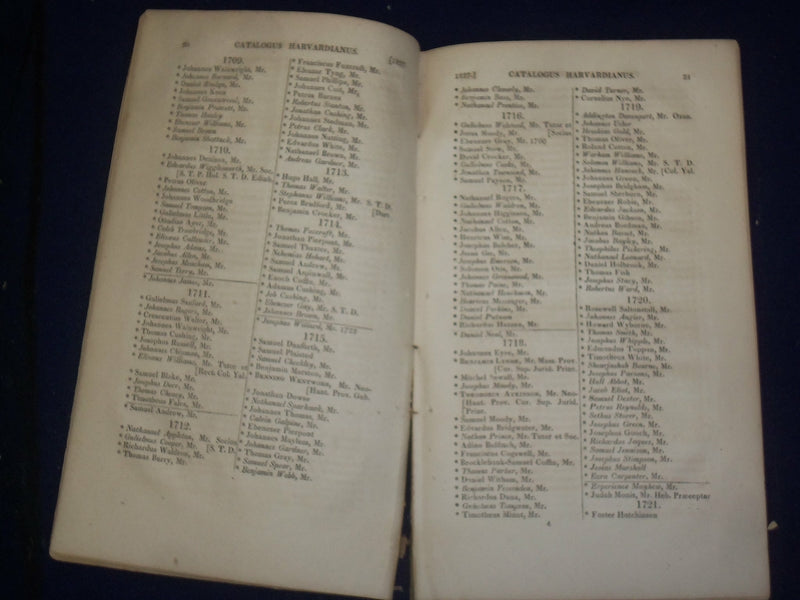 20 CATALOGUS HARVARDIANUS. [1827
1709.
* Johannes Wainwright, Mr.
* Johannes Barnard, Mr.
* Daniel Hodge, Mr.
* Johannes Knox
* Samuel Greenwood, Mr.
* Benjamin Prescott, Mr.
* Thomas Hanley
* Ebenezer Williams, Mr.
* Samuel Brown
* Benjamin Shattuck, Mr.
1710.
* Johannes Denison, Mr.
* Edvardus Wigglesworth, Mr. Soc.
[S. T. P. Hol. S. T. D. Edinb.
* Petrus Oliver
* Johannes Cotton, Mr.
* Johannes Woodbridge
* Samuel Tompson, Mr.
* Gulielmus Little, Mr.
* Obadias Ayer, Mr.
* Caleb Trowbridge, Mr.
* Elisæus Callender, Mr.
* Josephus Adams, Mr.
* Jacobus Allin, Mr.
* Josephus Meacham, Mr.
* Samuel Terry, Mr.
* Johannes James, Mr.
1711.
* Gulielmus Stoddard, Mr.
* Johannes Rogers, Mr.
* Crescentius Walter, Mr.
* Johannes Wainwright, Mr.
* Thomas Cushing, Mr.
* Josephus Russell, Mr.
* Johannes Chipman, Mr.
* Elisæus Williams, Mr. Tutor et
[Rect. Col. Yal.
* Samuel Bloke, Mr.
* Josephus Dorr, Mr.
* Thomas Cheney, Mr.
* Timotheus Fales, Mr.
* Samuel Andrew, Mr.
1712.
* Nathanael Appleton, Mr. Socius
* Gulielmus Cooper, Mr. [S. T. D.
* Richardus Waldron, Mr.
* Thomas Barry, Mr.
* Franciscus Foxcraft, Mr.
* Eleazar Tyng, Mr.
* Samuel Phillips, Mr.
* Johannes Coit, Mr.
* Petrus Barnes
* Robertus Stanton, Mr.
* Jonathan Cushing, Mr.
* Johannes Stedman, Mr.
* Petrus Clark, Mr.
* Johannes Nutting, Mr.
* Edvardus White, Mr.
* Nathanael Brown, Mr.
* Andreas Gardner, Mr.
1713.
* Hugo Hall, Mr.
* Thomas Walter, Mr.
* Stephanus Williams, Mr. S. T. D.
* Petrus Bradford, Mr. [Dart.
* Benjamin Crocker, Mr.
1714.
* Thomas Foxcroft, Mr.
* Jonathan Pierpont, Mr.
* Samuel Thaxter, Mr.
* Nehemias Hobart, Mr.
* Samuel Andrew, Mr.
* Samuel Aspinwall, Mr.
* Enoch Coffin, Mr.
* Adamus Cushing, Mr.
* Job Cushing, Mr.
* Ebenezer Gay, Mr. S. T. D.
* Johannes Brown, Mr.
* Josephus Willard, Mr. 1723
1715.
* Samuel Danforth, Mr.
* Samuel Plaisted
* Samuel Checkley, Mr.
* Benjamin Marston, Mr.
* BENNING WENTWORTH, Mr. Neo-
[Hant. Prov. Gub.
* Jonathan Dowse
* Nathanael Sparhawk, Mr.
* Johannes Thomas, Mr.
* Calvin Galpine, Mr.
* Ebenezer Pierpont
* Johannes Mayhem, Mr.
* Johannes Gardner, Mr.
* Thomas Gray, Mr.
* Samuel Spear, Mr.
* Benjamin Webb, Mr.
1827.] CATALOGUS HARVARDIANUS. 21
* Johannes Cleverly, Mr.
* Benjamin Bass, Mr.
* Nathanael Prentice, Mr.
1716.
* Gulielmus Welsteed, Mr. Tutor et
* Josias Moody, Mr. [Socius
* Ebenezer Gray, Mr.
* Samuel Stow, Mr.
* David Crocker, Mr.
* Gulielmus Cooke, Mr.
* Jonathan Townsend, Mr.
* Samuel Payson, Mr.
1717.
* Nathanael Rogers, Mr.
* Gulielmus Waldron, Mr.
* Johannes Higginson, Mr.
* Nathanael Cotton, Mr.
* Jacobus Allen, Mr.
* Henricus Wise, Mr.
* Josephus Belcher, Mr.
* Jonas Gee, Mr.
* Josephus Emerson, Mr.
* Solomon Otis, Mr.
* Johannes Greenwood, Mr.
* Thomas Paine, Mr.
* Nathanael Henchman, Mr.
* Henricus Messenger, Mr.
* Daniel Perkins, Mr.
* Daniel Putnam
* Richardus Hazzen, Mr.
* Daniel Neal, Mr.
1718.
* Johannes Eyre, Mr.
* BENJAMIN LYNDE, Mr. Mass. Prov.
[Cur. Sup. Jurid. Prim.
* Mitchel Sewall, Mr.
* Josephus Moody, Mr.
* THEODORUS ATKINSON, Mr. Neo-
[Hant. Prov. Cur. Sup. Jurid.
[Prim.
* Samuel Moody, Mr.
* Edvardus Bridgwater, Mr.
* Nathan Prince, Mr. Tutor et Soc.
* Adino Bulfinch, Mr.
* Franciscus Cogswell, Mr.
* Brocklebank-Samuel Coffin, Mr.
* Thomas Parker, Mr.
* Daniel Witham, Mr.
* Benjamin Fessenden, Mr.
* Richardus Dana, Mr.
* Gulielmus Tompson, Mr.
* Timotheus Minot, Mr.
* David Turner, Mr.
* Cornelius Nye, Mr.
1719.
* Addington Davenport, Mr. Oxon.
* Johannes Usher
* Hezekias Gold, Mr.
* Thomas Oliver, Mr.
* Roland Cotton, Mr.
* Warham Williams, Mr.
* Solomon Williams, Mr. S. T. D.
* Johannes Hancock, Mr. [Col. Yal.
* Johannes Green, Mr.
* Josephus Bridgham, Mr.
* Samuel Sherburn, Mr.
* Ebenezer Robie, Mr.
* Edvardus Jackson, Mr.
* Benjamin Gibson, Mr.
* Andreas Bordman, Mr.
* Nathan Basset, Mr.
* Jacobus Bayley, Mr.
* Theophilus Pickering, Mr.
* Nathanael Leonard, Mr.
* Daniel Holbrook, Mr.
* Thomas Fish
* Josephus Stacy, Mr.
* Robertus Ward, Mr.
1720.
* Rosewell Saltonstall, Mr.
* Johannes Angier, Mr.
* Howard Wyborne, Mr.
* Thomas Smith, Mr.
* Josephus Whipple, Mr.
* Edmundus Toppan, Mr.
* Timotheus White, Mr.
* Shearjashub Bourne, Mr.
* Josephus Parsons, Mr.
* Hull Abbot, Mr.
* Jacob Eliot, Mr.
* Samuel Dexter, Mr.
* Petrus Reynolds, Mr.
* Sethus Storer, Mr.
* Josephus Green, Mr.
* Josephus Gooch, Mr.
* Richardus Jaques, Mr.
* Samuel Jennison, Mr.
* Josephus Stimpson, Mr.
* Josias Marshall
* Ezra Carpenter, Mr.
* Experience Mayhew, Mr.
* Judah Monis, Mr. Heb. Præceptor
1721.
* Foster Hutchinson
4